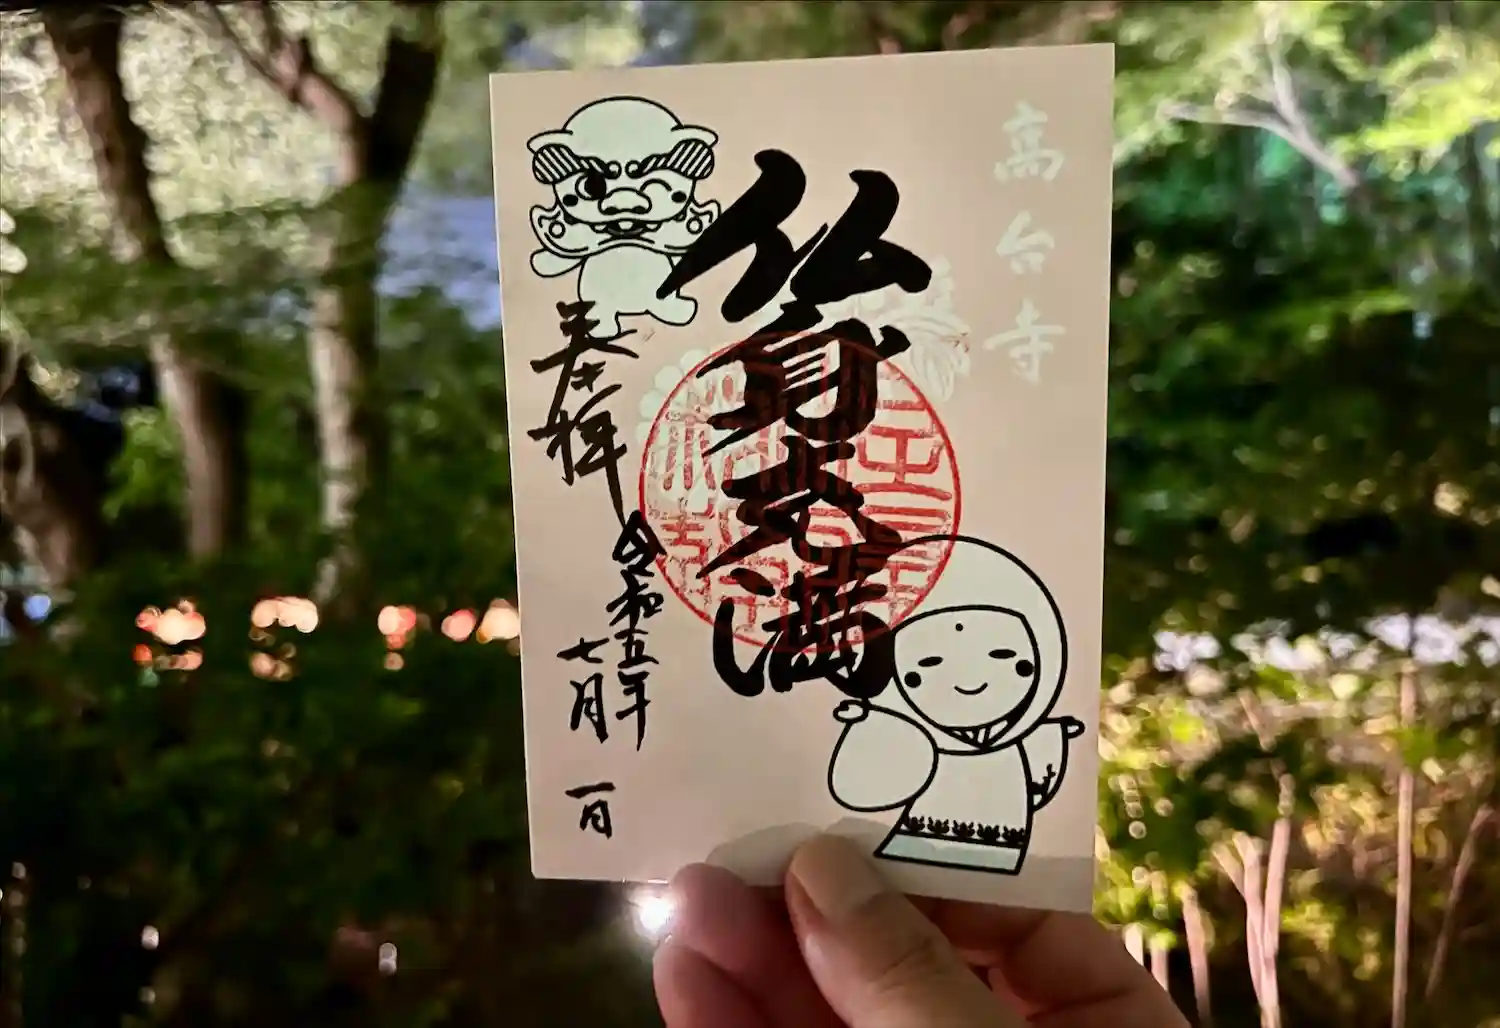 高台寺
仏身充満
奉拝
令和五年
七月一日